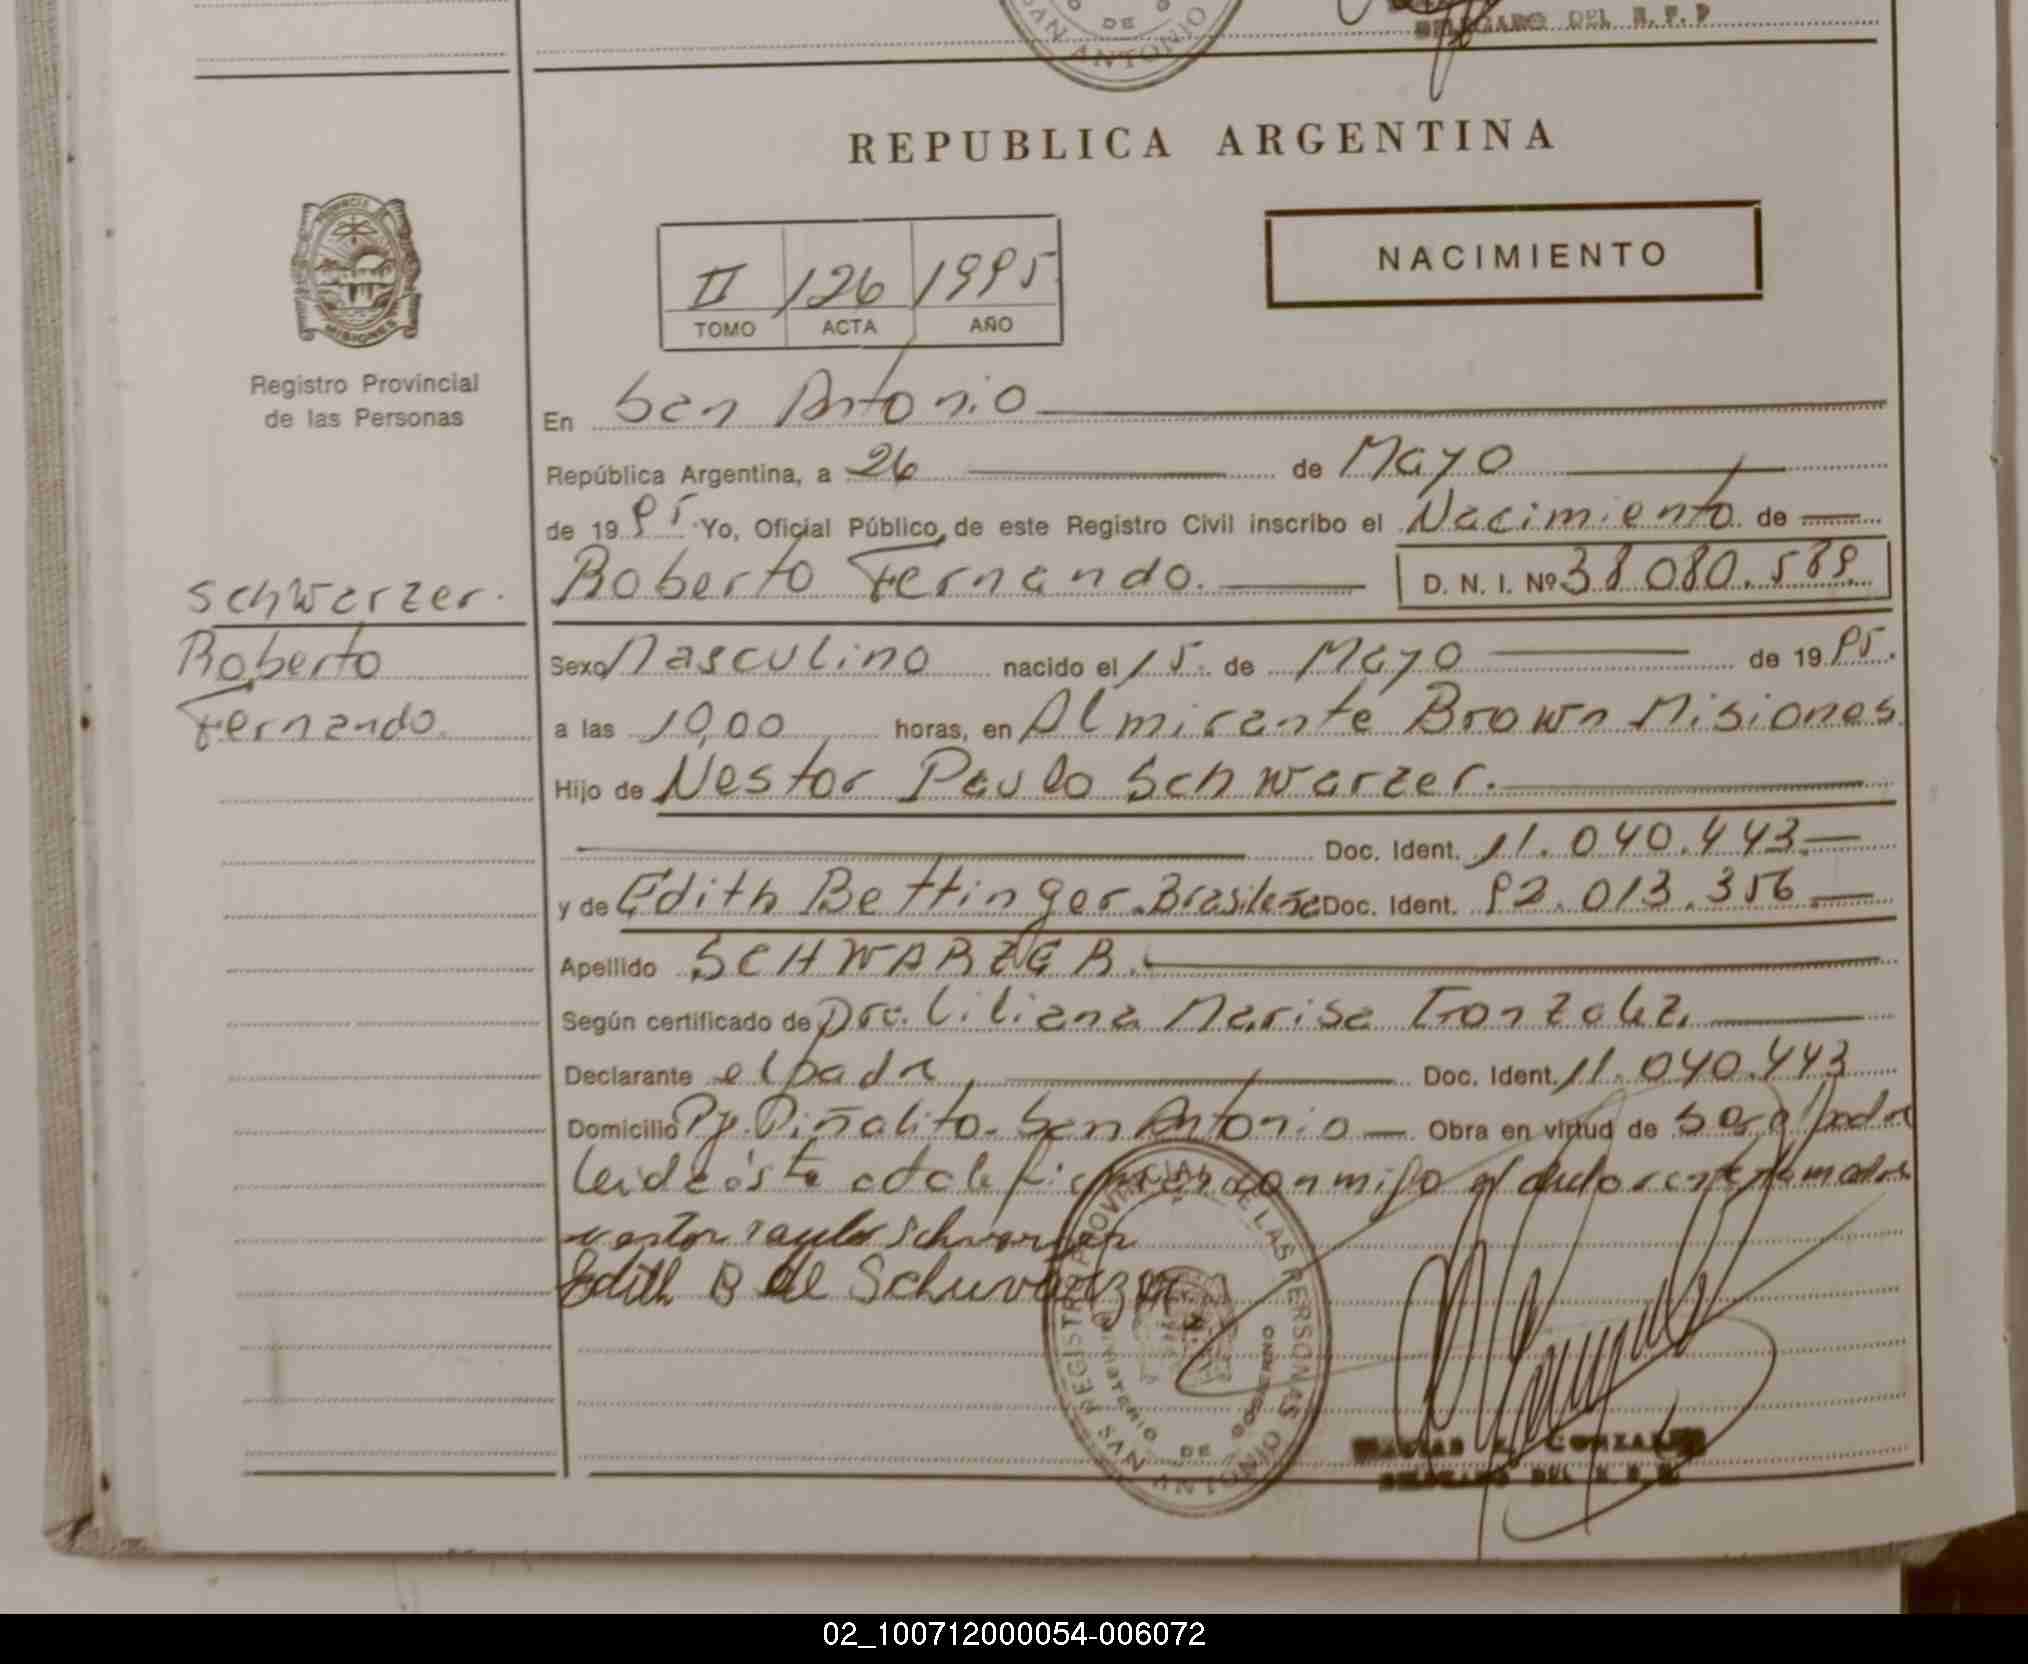 DELEGADO DEL R.P.P
DE
SAN ANTONIO
REPUBLICA ARGENTINA
PROVINCIA DE
MISIONES
II 126 1995
TOMO ACTA AÑO
NACIMIENTO
Registro Provincial
de las Personas
En San Antonio
República Argentina, a 26 de Mayo
de 1995. Yo, Oficial Público, de este Registro Civil inscribo el Nacimiento de
Roberto Fernando. D. N. I. Nº 38.080.589
Schwarzer.
Roberto
Fernando.
Sexo Masculino nacido el 15. de Mayo de 1995.
a las 10,00 horas, en Almirante Brown Misiones
Hijo de Nestor Paulo Schwarzer.
Doc. Ident. 11.040.443.
y de Edith Bettinger. Brasileña Doc. Ident. 92.013.356
Apellido SCHWARZER.
Según certificado de Dra. Liliana Marisa Gonzalez.
Declarante el padre, Doc. Ident. 11.040.443
Domicilio Pje. Piñalito. San Antonio Obra en virtud de ser el padre
Leida ésta acta la firman conmigo el declarante y la madre
nestor paulo schwarzer
Edith B de Schwarzer
REGISTRO PROVINCIAL DE LAS PERSONAS
MINISTERIO DE GOBIERNO
SAN ANTONIO
GONZALEZ
DELEGADO DEL R.P.P.
02_100712000054-006072